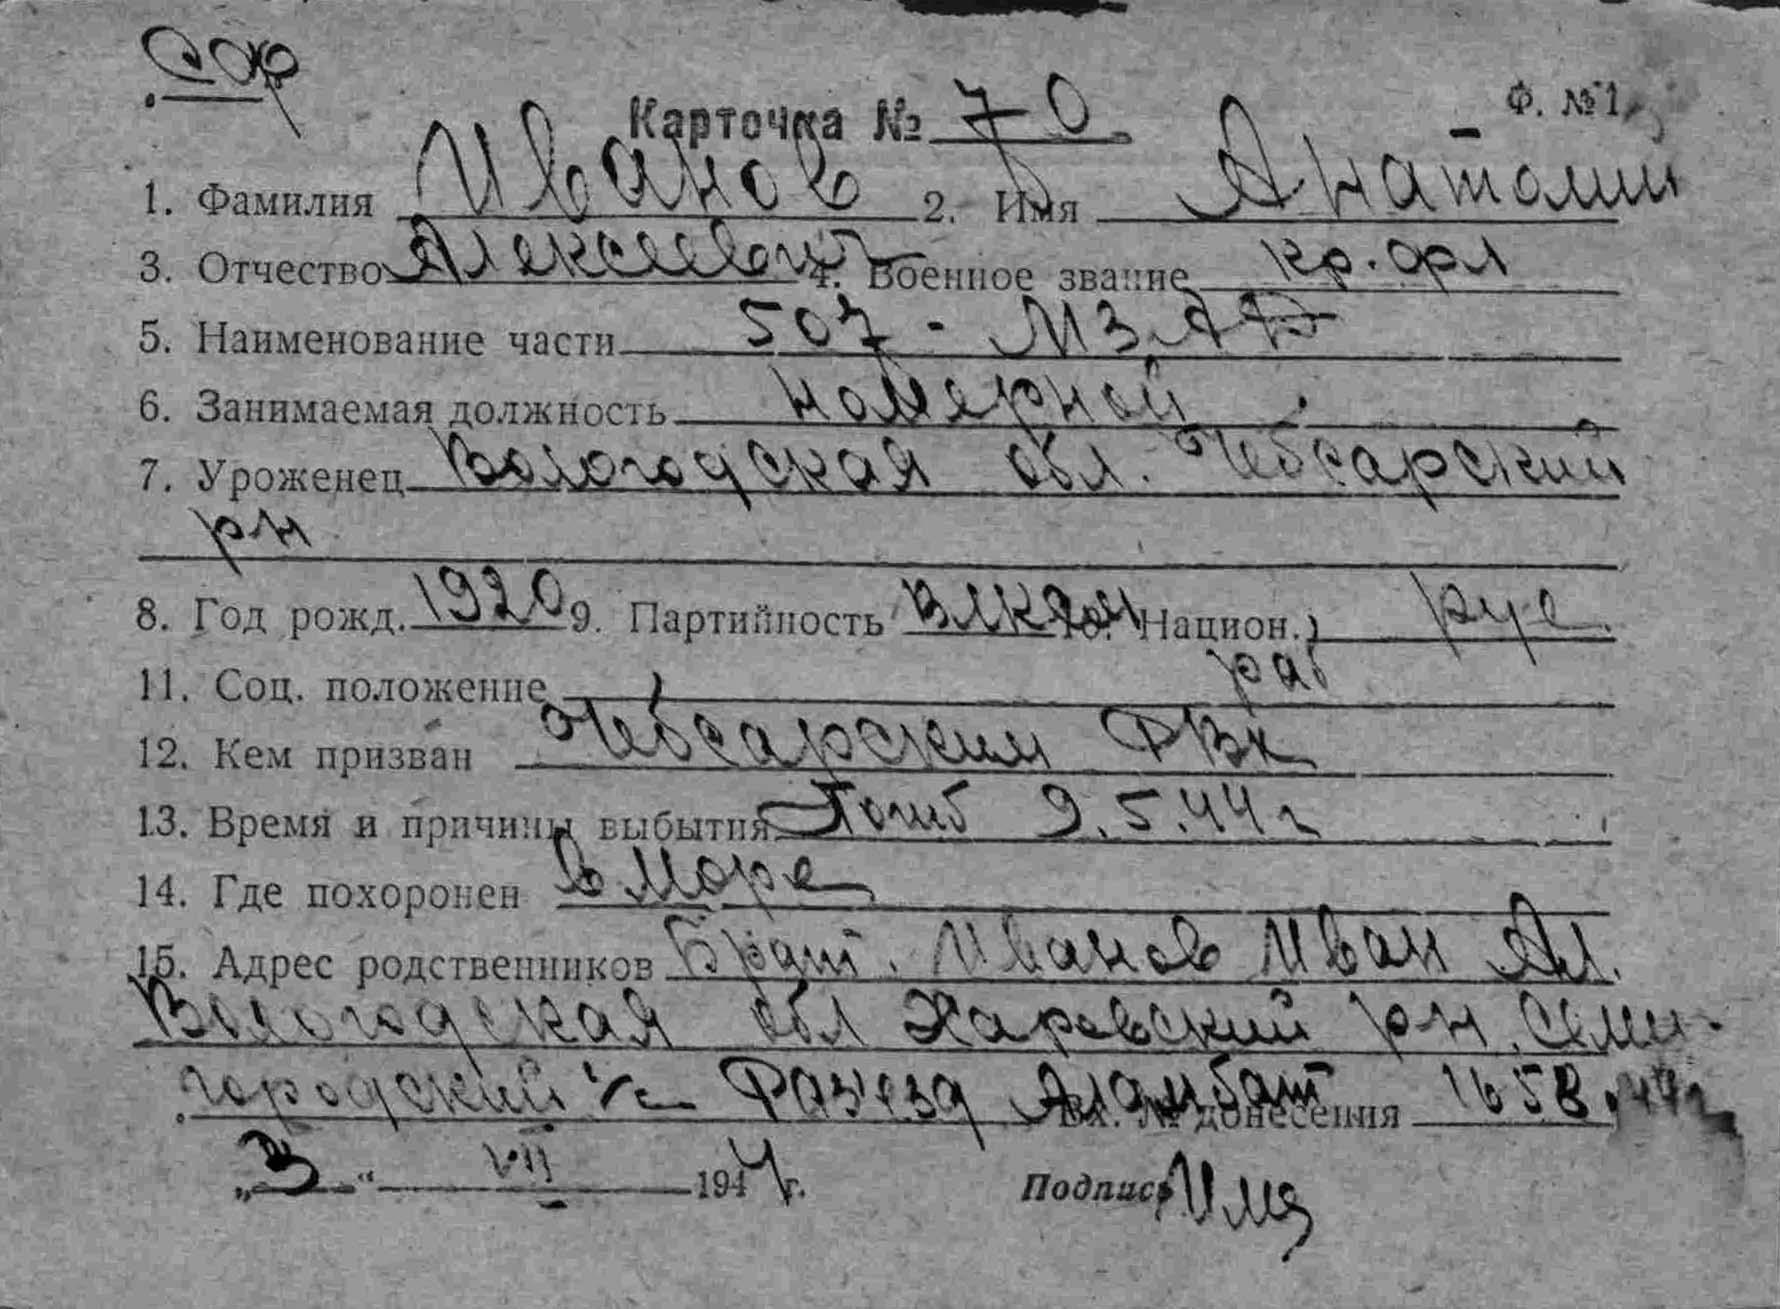 Карточка № 70 Ф. № 1
1. Фамилия Иванов 2. Имя Анатолий
3. Отчество Алексеевич 4. Военное звание кр. фл
5. Наименование части 507 - МЗАД
6. Занимаемая должность номерной
7. Уроженец Вологодская обл. Чебсарский
рн
8. Год рожд. 1920 9. Партийность ВЛКСМ 10. Национ. рус.
11. Соц. положение раб
12. Кем призван Чебсарским РВК
13. Время и причины выбытия Погиб 9.5.44 г
14. Где похоронен в море
15. Адрес родственников Брат. Иванов Иван Ал.
Вологодская обл Харовский рн. Семи-
городский с/с Раз'езд Вх. № донесения 1658
„3“ VII 1944 г. Подпись